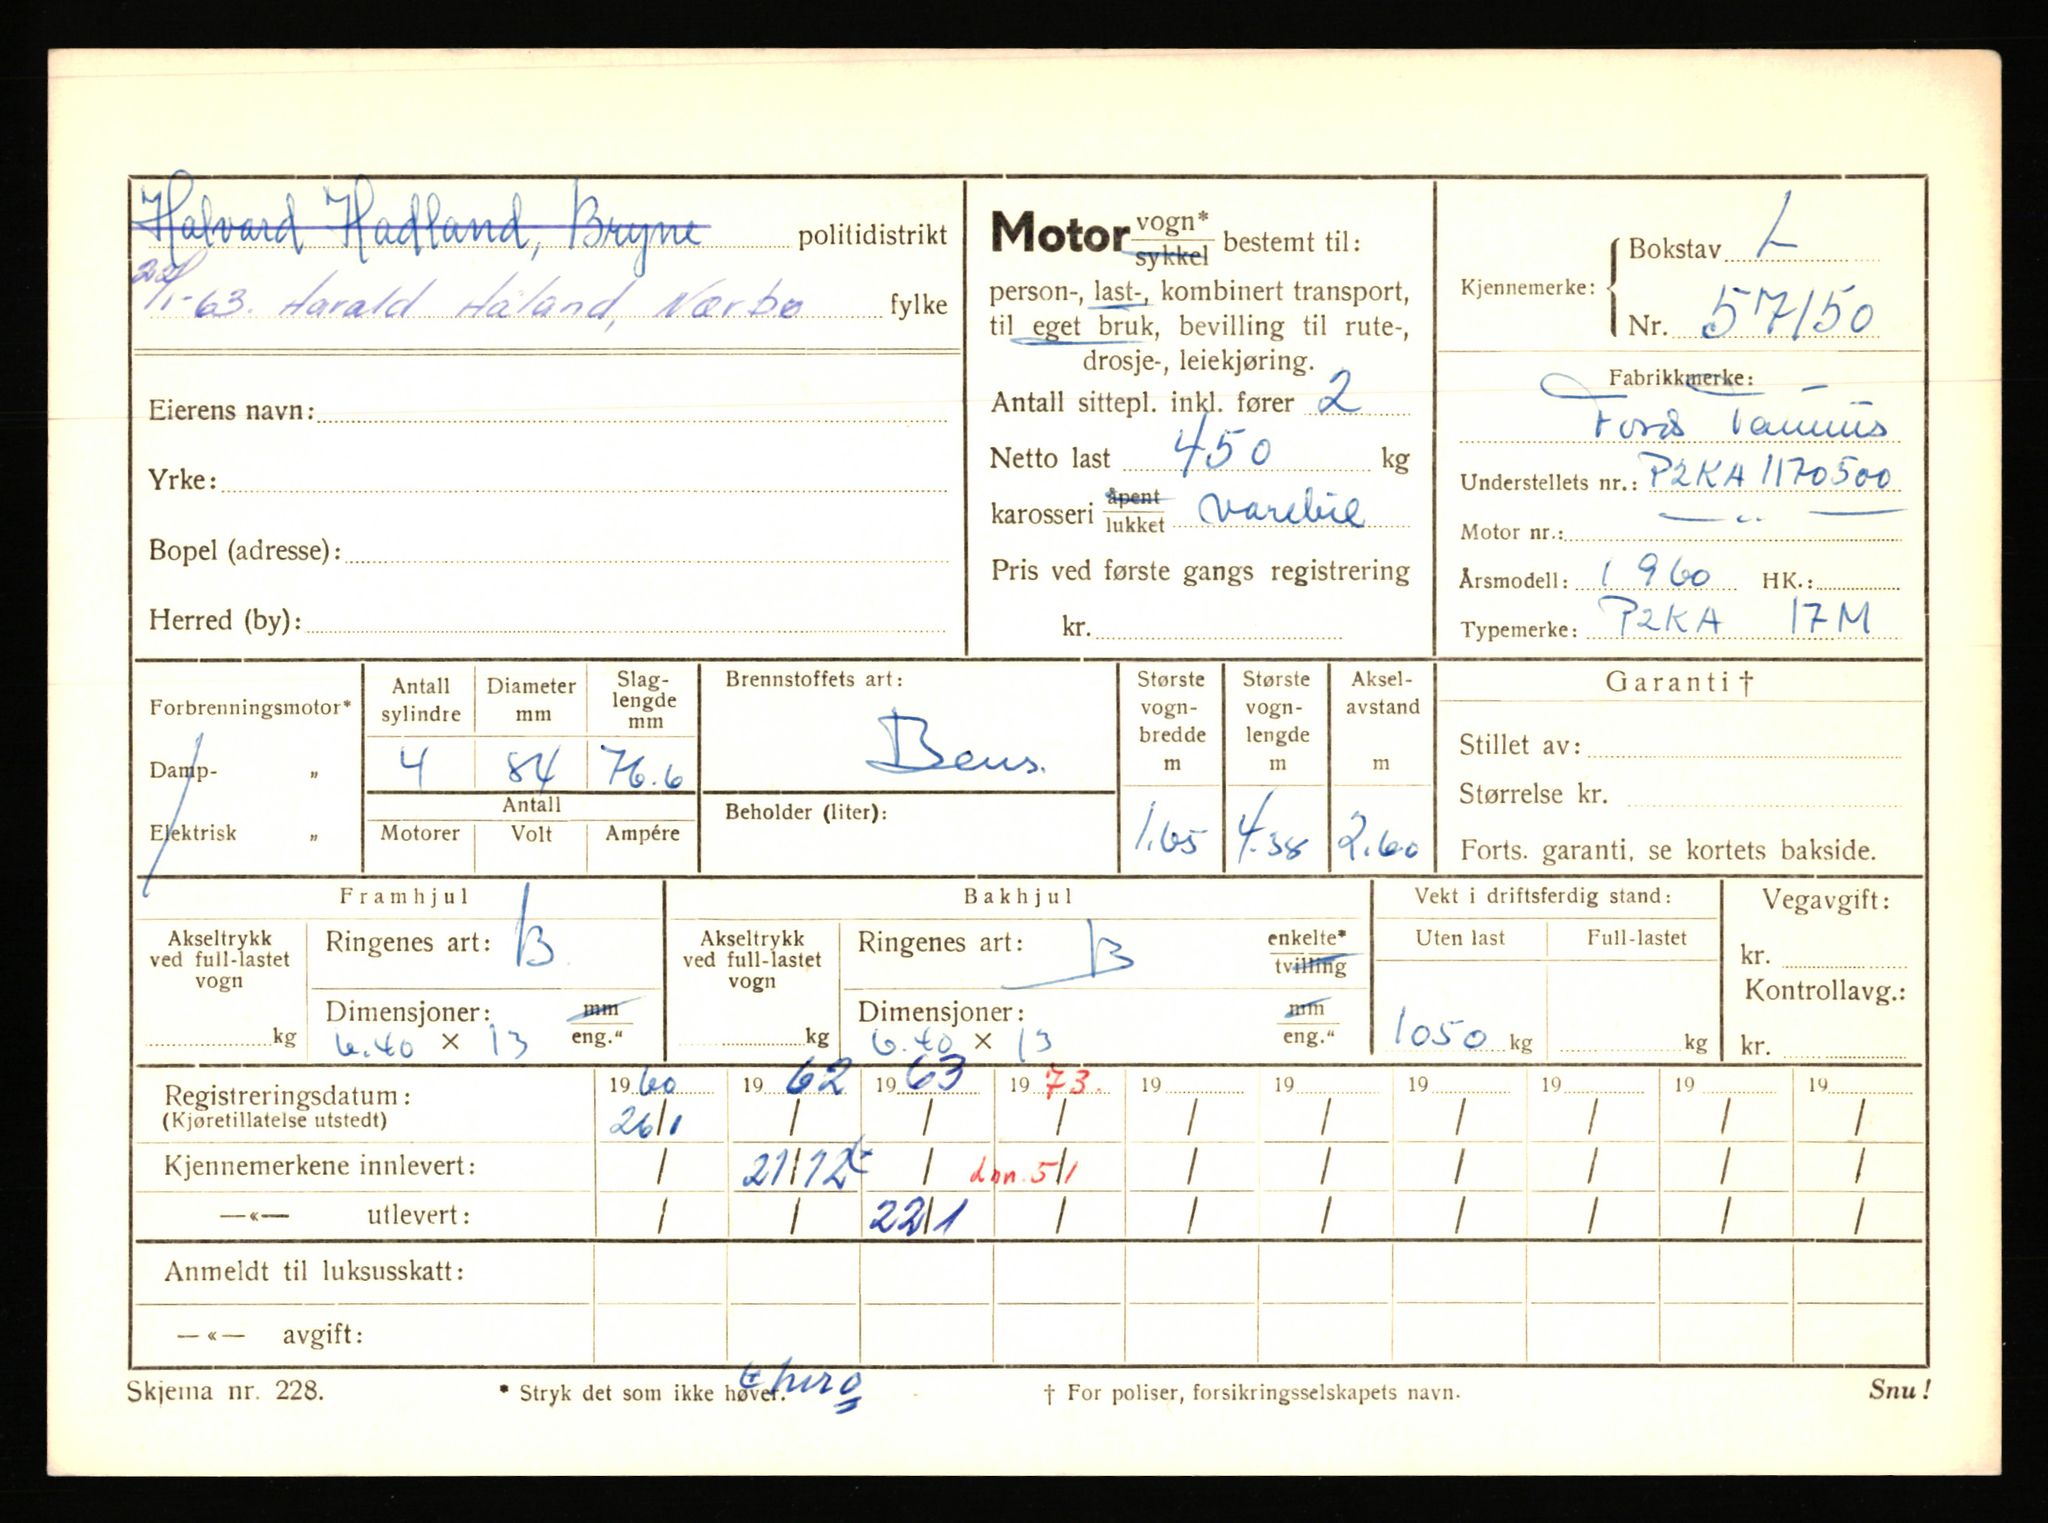 Halvard Hadland, Bryne politidistrikt
22/1-63. Harald Håland, Nærbø fylke
Eierens navn:
Yrke:
Bopel (adresse):
Herred (by):
Motor vogn* sykkel bestemt til:
person-, last-, kombinert transport,
til eget bruk, bevilling til rute-,
drosje-, leiekjøring.
Antall sittepl. inkl. fører 2
Netto last 450 kg
karosseri åpent lukket varebil
Pris ved første gangs registrering
kr.
Kjennemerke: Bokstav L
Nr. 57150
Fabrikkmerke:
Ford Taunus
Understellets nr.: P2KA 1170500
Motor nr.: — " —
Årsmodell: 1960 HK.:
Typemerke: P2KA 17M
Forbrenningsmotor*
Damp- „
Elektrisk „
Antall sylindre Diameter mm Slag-lengde mm
4 84 76.6
Antall
Motorer Volt Ampére
Brennstoffets art:
Bens.
Beholder (liter):
Største vogn-bredde m Største vogn-lengde m Aksel-avstand m
1.65 4.38 2.60
Garanti †
Stillet av:
Størrelse kr.
Forts. garanti, se kortets bakside.
Framhjul
Akseltrykk ved full-lastet vogn
kg
Ringenes art: B
Dimensjoner: mm
6.40 × 13 eng."
Bakhjul
Akseltrykk ved full-lastet vogn
kg
Ringenes art: B enkelte* tvilling
Dimensjoner: mm
6.40 × 13 eng."
Vekt i driftsferdig stand:
Uten last Full-lastet
1050 kg kg
Vegavgift:
kr.
Kontrollavg.:
kr.
Registreringsdatum: 1960 1962 1963 1973. 19 19 19 19 19 19
(Kjøretillatelse utstedt) 26/1 / / / / / / / / /
Kjennemerkene innlevert: / 21/12 / 5/1 / / / / / /
—«— utlevert: / / 22/1 / / / / / / /
Anmeldt til luksusskatt:
—«— avgift:
Skjema nr. 228.
* Stryk det som ikke høver.
† For poliser, forsikringsselskapets navn.
Snu!